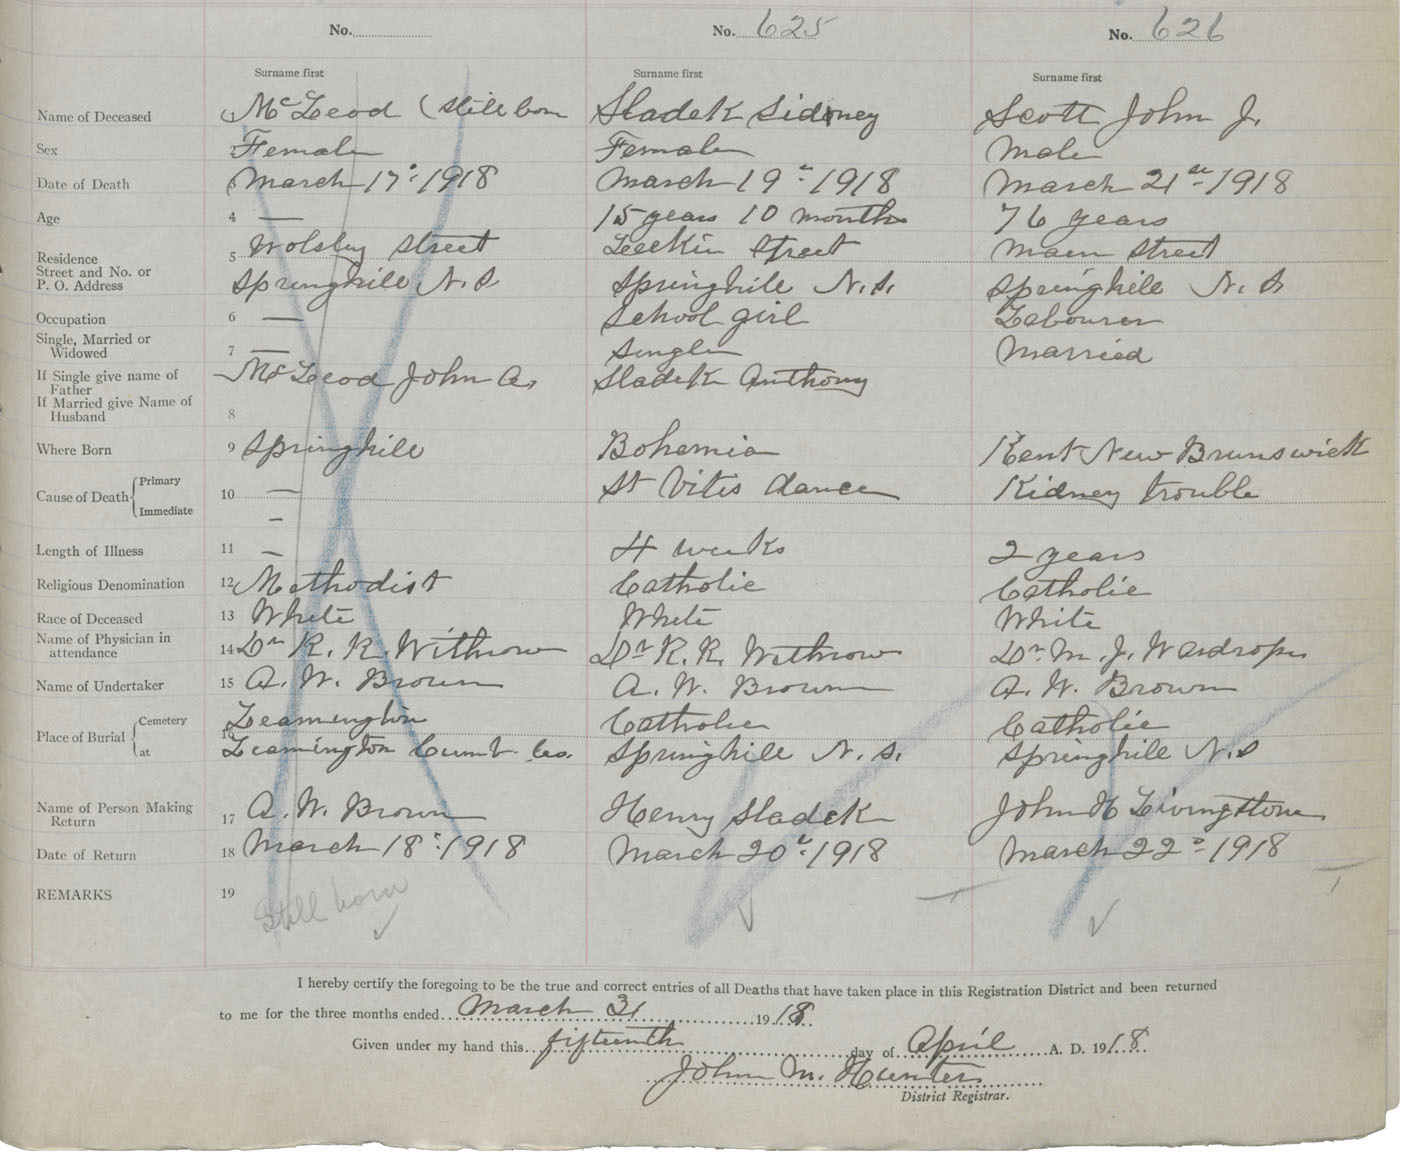 No. 
No. 625
No. 626
Surname first
Surname first
Surname first
Name of Deceased McLeod (Still born Sladek Sidney Scott John J.
Sex 2 Female Female Male
Date of Death 3 March 17th 1918 March 19th 1918 March 21st 1918
Age 4 — 15 years 10 months 76 years
Residence 5 Wolsley Street Street Main Street
Street and No. or
P. O. Address Springhill N.S Springhill N.S. Springhill N.S
Occupation 6 — School girl Labourer
Single, Married or
Widowed 7 — Single Married
If Single give name of
Father McLeod John A. Sladek Anthony
If Married give Name of
Husband 8
Where Born 9 Springhill Bohemia Kent New Brunswick
Cause of Death Primary 10 — St Vitis dance Kidney trouble
Immediate –
Length of Illness 11 – 4 weeks 2 years
Religious Denomination 12 Methodist Catholic Catholic
Race of Deceased 13 White White White
Name of Physician in
attendance 14 Dr R. R. Withrow Dr R. R. Withrow Dr. M. J. Wardrope
Name of Undertaker 15 A. W. Brown A. W. Brown A. W. Brown
Place of Burial Cemetery 16 Leamington Catholic Catholic
at Leamington Cumb. Co. Springhill N.S. Springhill N.S
Name of Person Making
Return 17 A. W. Brown Henry Sladek John H Livingstone
Date of Return 18 March 18th 1918 March 20th 1918 March 22nd 1918
REMARKS 19 Still born
I hereby certify the foregoing to be the true and correct entries of all Deaths that have taken place in this Registration District and been returned
to me for the three months ended March 31 1918.
Given under my hand this fifteenth day of April A. D. 1918.
John M. Hunter
District Registrar.